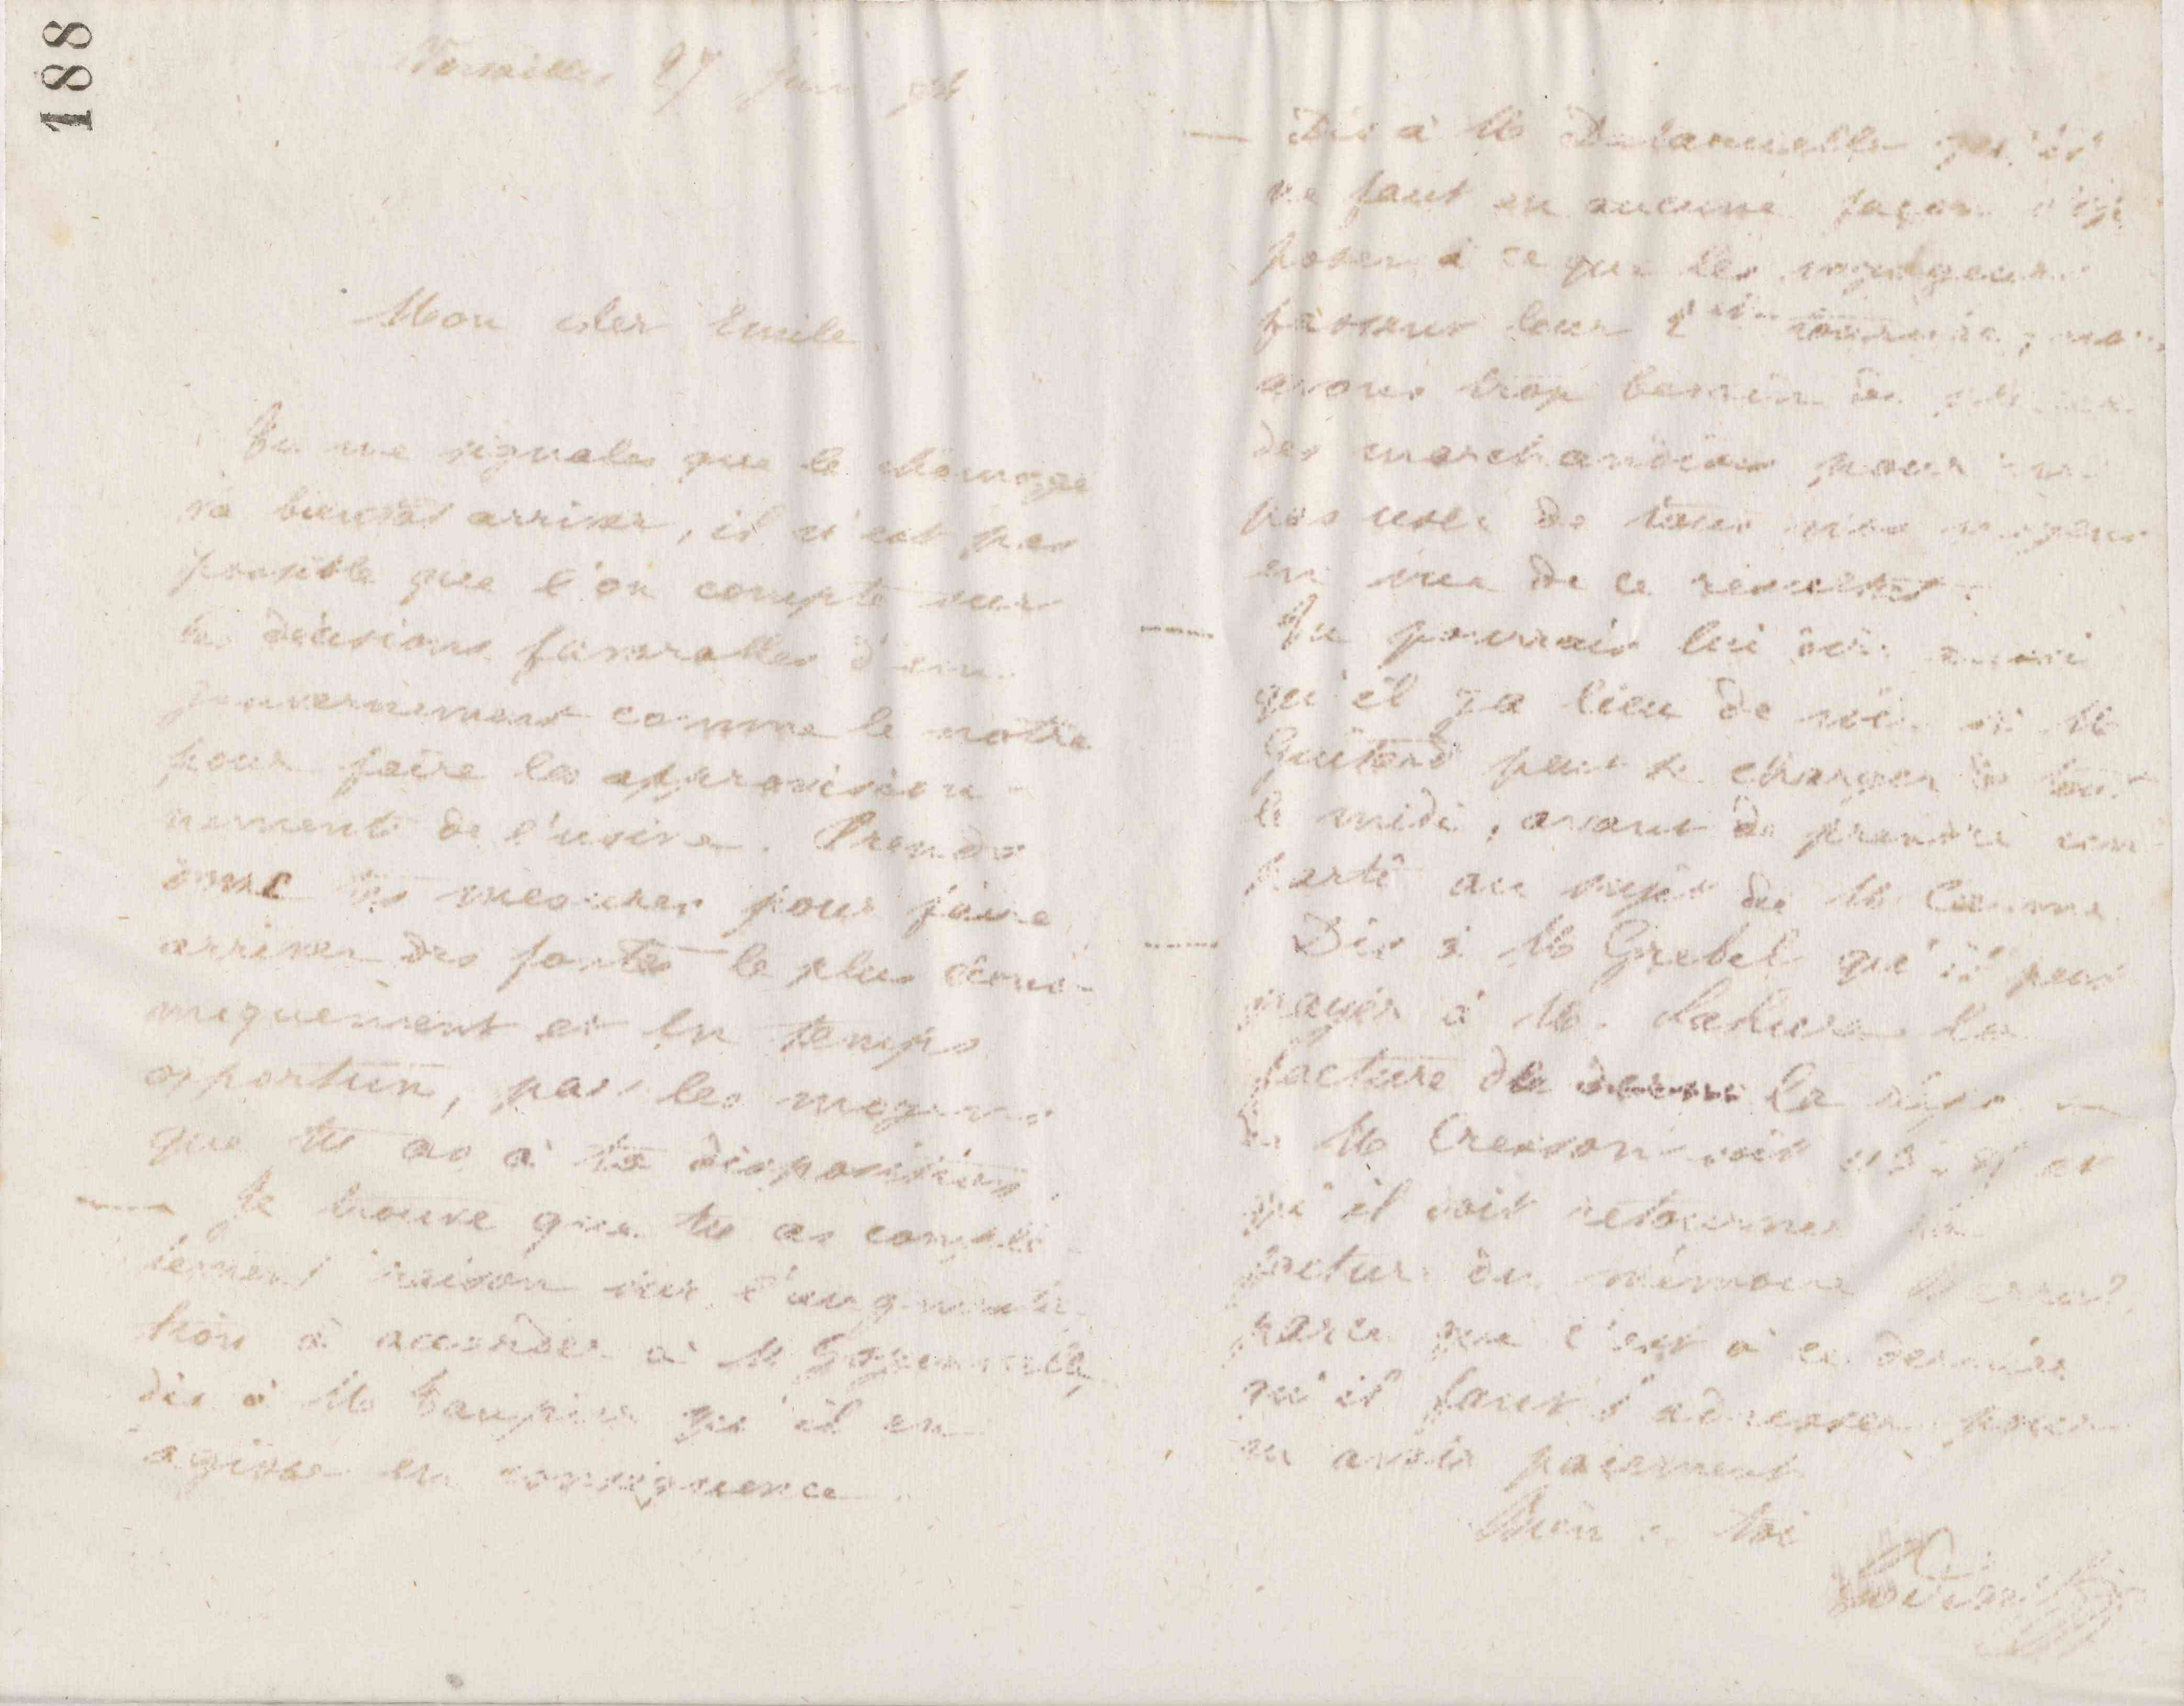 188
Versailles 27 Juin
Mon cher Emile
Tu me signales que le chomage
va bientot arriver, il n'est pas
possible que l'on compte sur
les décisions favorables d'un
gouvernement comme le notre
pour faire les approvision-
nements de l'usine. Prends
donc tes mesures pour faire
arriver des fontes le plus écono-
miquement et en temps
opportun, par les moyens
que tu as à ta disposition.
Je trouve que tu as complè-
tement raison sur l'augmenta-
tion à accorder à M
dis à M Taupin qu'il en
agisse en conséquence.
Dis à M Delaruelle qu'il
ne faut en aucune façon s'op-
poser à ce que les voyageurs
fassent leur 2eme tournée; nous
avons trop besoin de
des marchandises pour ne
pas user de tous nos moyens
en vue de ce résultat.
Tu pourrais lui dire aussi
qu'il y a lieu de voir si M
Guitard peut se charger de tout
le midi, avant de prendre un
parti au sujet de M
Dis à M Grebel qu'il peut
payer à M. Lahure la
facture de la
M Cresson soit et
qu'il doit retourner la
facture du mémoire
parce que c'est à ce dernier
qu'il faut s'adresser pour
en avoir paiement
Bien à toi
Godin